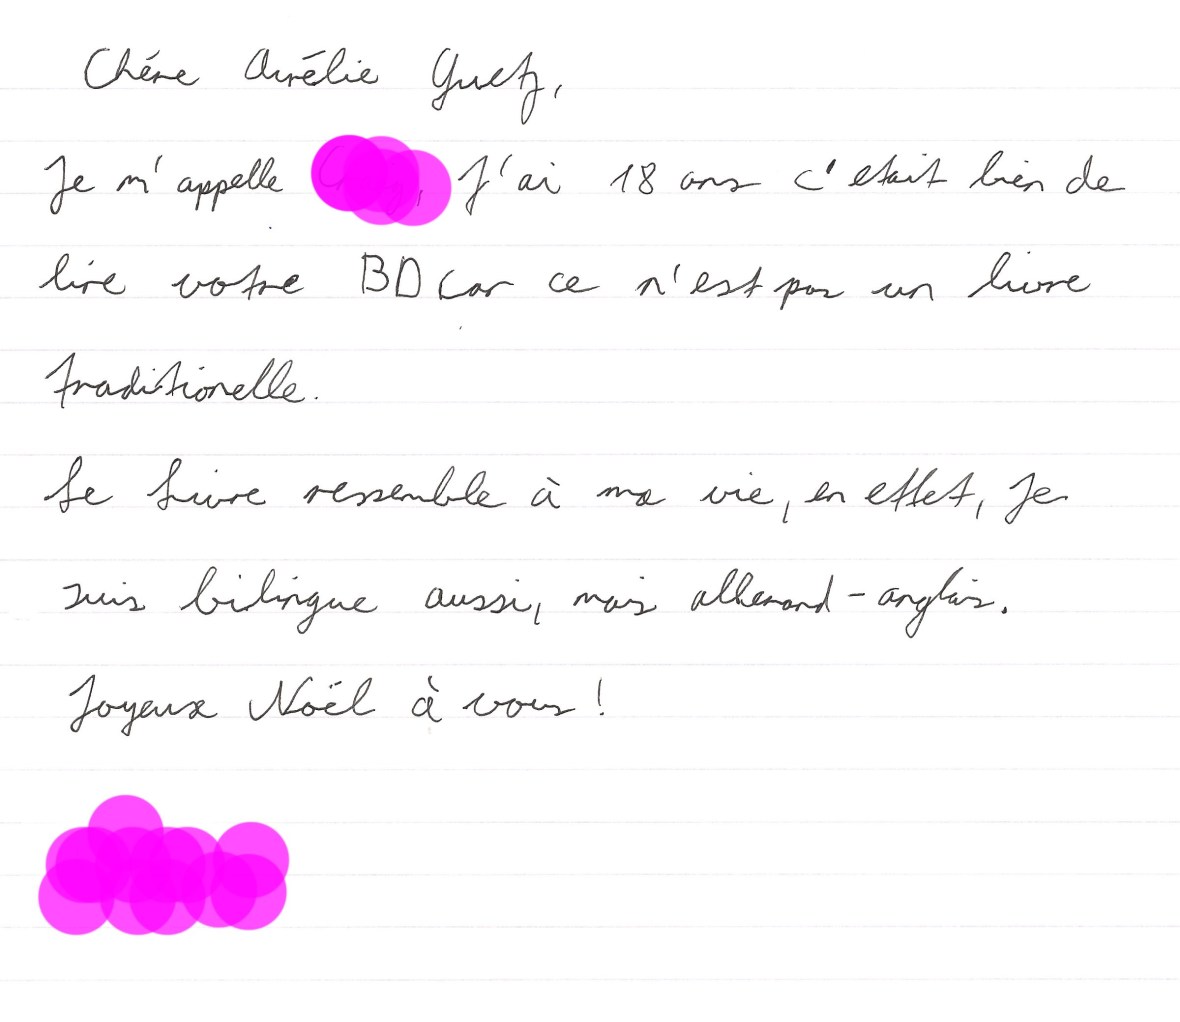 Chére Aurélie Guetz,
Je m'appelle J'ai 18 ans c'etait bien de
lire votre BD car ce n'est pas un livre
traditionelle.
Le Livre ressemble à ma vie, en effet, Je
suis bilingue aussi, mais allemand-anglais.
Joyeux Noël à vous!